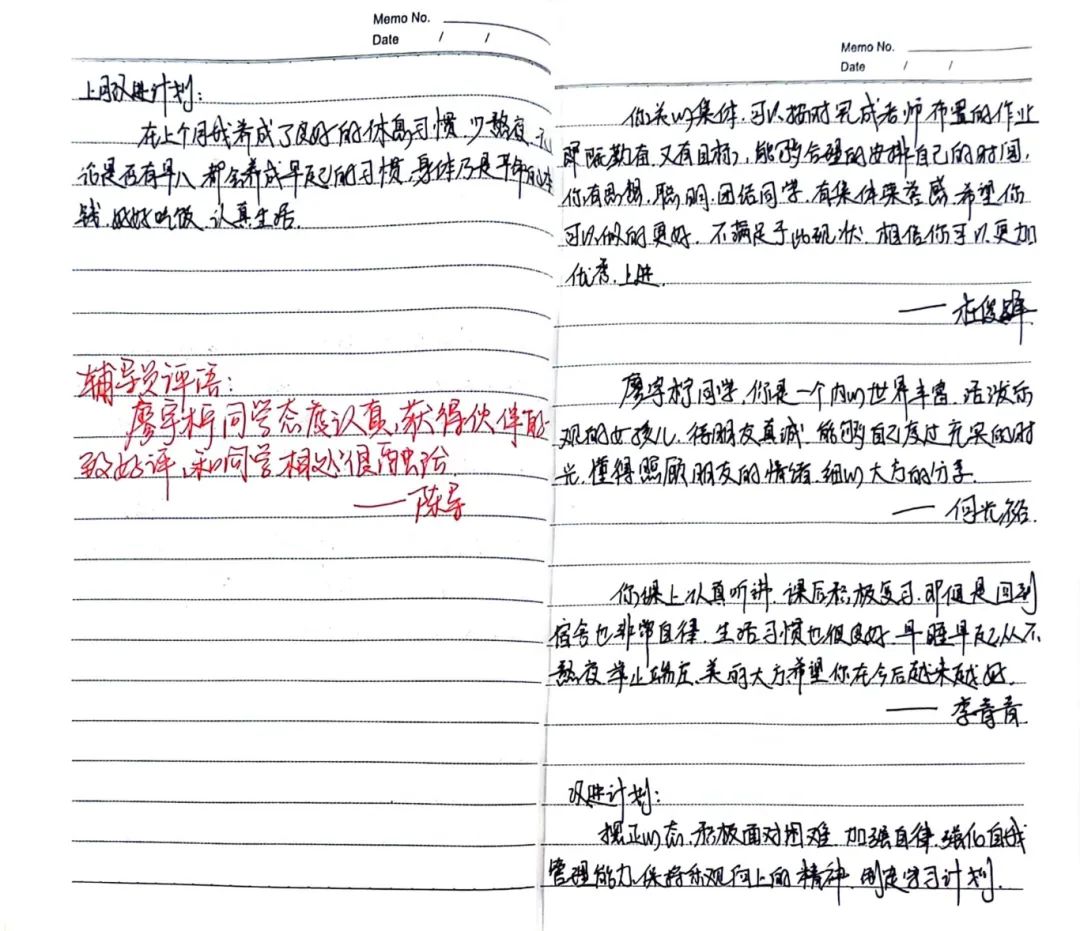 Memo No.
Date / /
上月改进计划:
在上个月我养成了良好的休息习惯,少熬夜,无
论是否有早八,都会养成早起的习惯,身体乃是革命的本
钱,好好吃饭,认真生活.
辅导员评语:
廖宇柠同学态度认真,获得伙伴一
致好评,和同学相处很融洽.
——陈导
Memo No.
Date / /
你关心集体,可以按时完成老师布置的作业
即既勤奋,又有目标,能够合理的安排自己的时间,
你有思想,聪明,团结同学,有集体荣誉感,希望你
可以做的更好,不满足于此现状,相信你可以更加
优秀,上进.
——杜俊
廖宇柠同学,你是一个内心世界丰富,活泼乐
观的女孩儿,待朋友真诚,能够自己度过充实的时
光,懂得照顾朋友的情绪,细心大方的分享.
——何光裕.
你课上认真听讲,课后积极复习,即便是回到
宿舍也非常自律,生活习惯也很良好,早睡早起从不
熬夜,举止端庄,美丽大方希望你在今后越来越好.
——李青青
改进计划:
摆正心态,积极面对困难,加强自律,强化自我
管理能力,保持乐观向上的精神,制定学习计划.